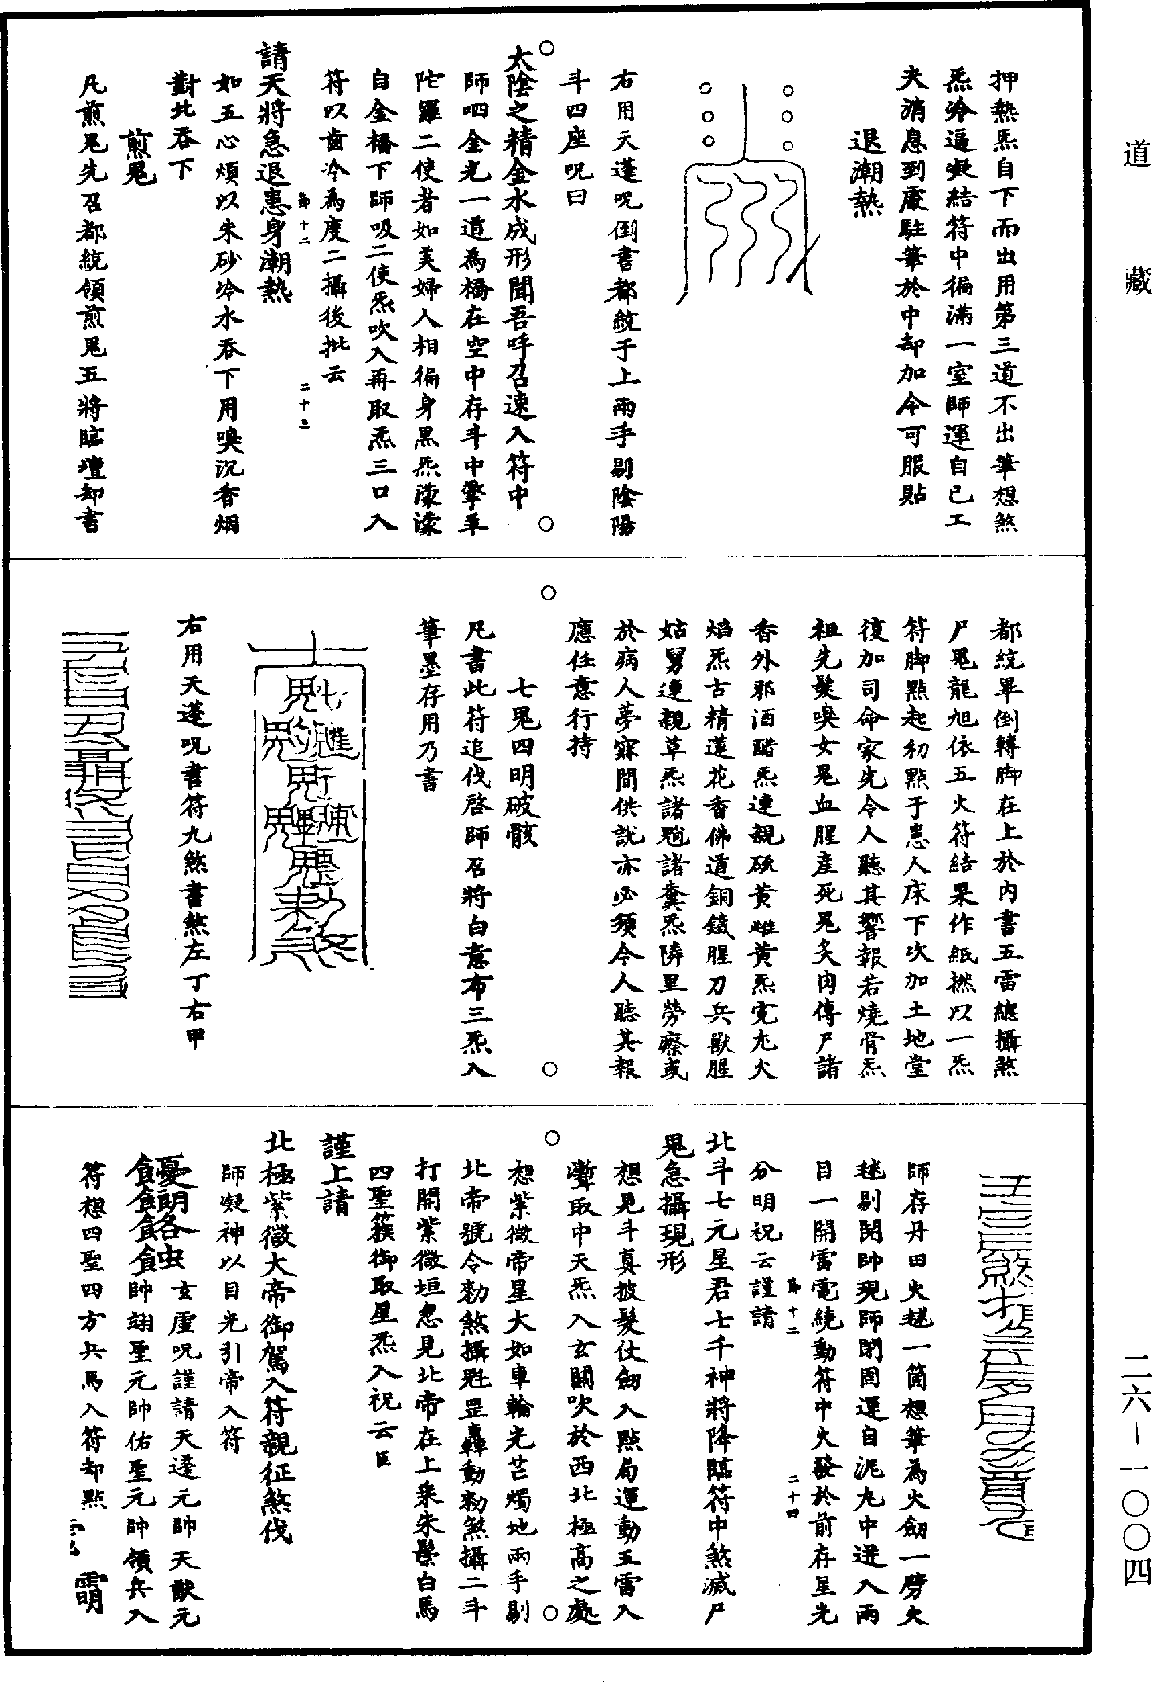 道藏
二六—一〇〇四
押熱炁自下而出用第三道不出筆想煞
炁冷逼凝結符中徧滿一室師運自己工
夫消息到處駐筆於中却加令可服貼
退潮熱
右用天蓬呪倒書都統于上兩手剔陰陽
斗四座呪曰
太陰之精金水成形聞吾呼召速入符中
師呬金光一道為橋在空中存斗中擎羊
陀羅二使者如美婦人相徧身黑炁濛濛
自金橋下師吸二使炁吹入再取炁三口入
符以齒冷為度二攝後批云
請天將急退患身潮熱
如五心煩以朱砂冷水吞下用噀沉香烟
對北吞下
煎鬼
凡煎鬼先召都統領煎鬼五將臨壇却書
都統單倒轉脚在上於內書五雷總攝煞
尸鬼龍旭依五火符結果作紙撚以一炁
符脚點起初點于患人床下次加土地堂
復加司命家先令人聽其響報若燒骨炁
祖先髮噀女鬼血腥產死鬼炙肉傳尸諸
香外邪酒醋炁連親硫黃雄黃炁
焰炁古精蓮花香佛道銅鐵腥刀兵獸腥
姑舅連親草炁諸魈諸糞炁隣里勞瘵或
於病人夢寐間供說亦必須令人聽其報
應任意行持
七鬼四明破骸
凡書此符追伐啓師召將白意布三炁入
筆墨存用乃書
右用天蓬呪書符九煞書煞左丁右甲
師存丹田火遶一箇想筆為火劒一劈火
遶剔開帥現師閉固運自泥丸中迸入兩
目一開雷電繞動符中火發於前存星光
分明祝云謹請
北斗七元星君七千神將降臨符中煞滅尸
鬼急攝現形
想見斗真披髮仗劒入點局運動五雷入
蟄取中天炁入玄關吹於西北極高之處
想紫微帝星大如車輪光芒燭地兩手剔
北帝號令勑煞攝魁罡轟動勑煞攝二斗
打開紫微垣忽見北帝在上乘朱鬃白馬
四聖簇御取星炁入祝云臣
謹上請
北極紫微大帝御駕入符親征煞伐
師凝神以目光引帝入符
玄虛呪謹請天蓬元帥天猷元
帥翊聖元帥佑聖元帥領兵入
符想四聖四方兵馬入符却點